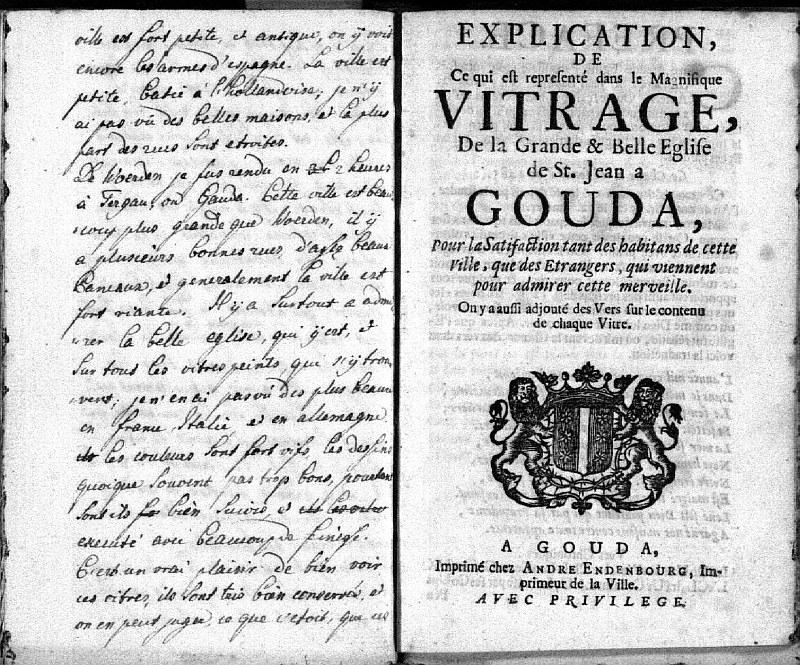 ville est fort petite, et antique, on y voit
encore les armes d'espagne. La ville est
petite, batie à l'hollandoise, je n'y
ai pas vû des belles maisons, et la plus
part des rues sont etroites.
De Woerden je fus rendu en 2 heures
à Tergau, ou Gauda. Cette ville est beau
-coup plus grande que Woerden, il y
a plusieurs bonnes rues, d'assez beaux
Caneaux, et generalement la ville est
fort riante. Il y a surtout a admi
-rer la belle eglise, qui y est, et
sur tous les vitres peints, qui s'y trou
-vent; je n'en ai pas vû des plus beaux
en france, Italie et en allemagne.
les couleurs sont fort vifs, les dessins
quoique souvent pas trop bons, pourtant
sont ils bien suivis, et
executé avec beaucoup de
C'est un vrai plaisir de bien voir
ces vitres, ils sont très bien conservés, et
on en peut juger ce que c'etoit, que ces
EXPLICATION,
DE
Ce qui est representé dans le Magnifique
VITRAGE,
De la Grande & Belle Eglise
de St. Jean a
GOUDA,
pour la Satisfaction tant des habitans de cette
Ville, que des Etrangers, qui viennent
pour admirer cette merveille.
On y a aussi adjouté des Vers sur le contenu
de chaque Vitre.
A GOUDA,
Imprimé chez ANDRE ENDENBOURG, Im-
primeur de la Ville.
AVEC PRIVILEGE.